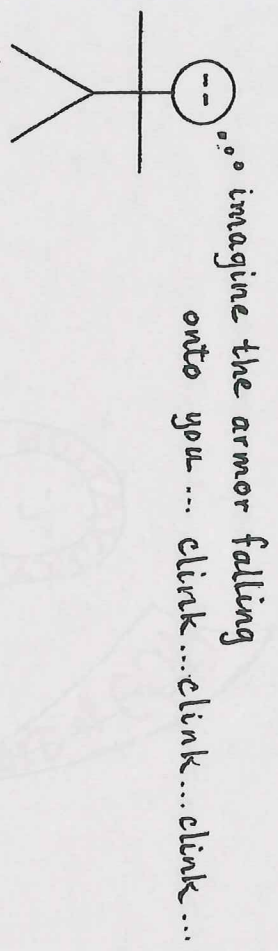 ... imagine the armor falling
onto you ... clink...clink...clink...